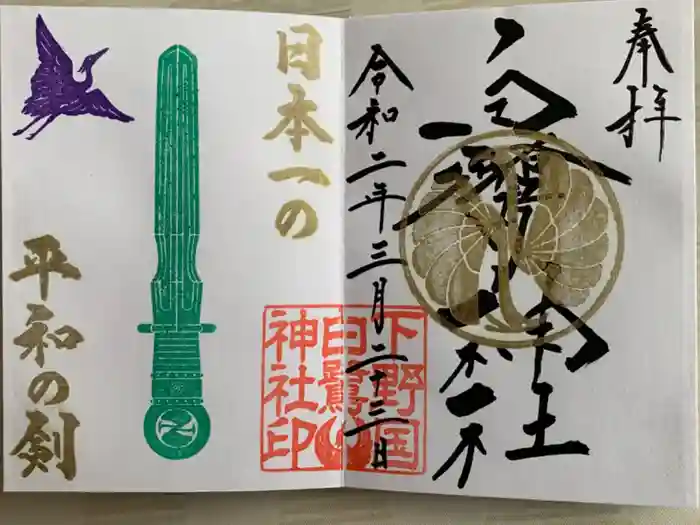 奉拝
令和二年三月二十三日
下野国
白鷺
神社印
日本一の
平和の剣